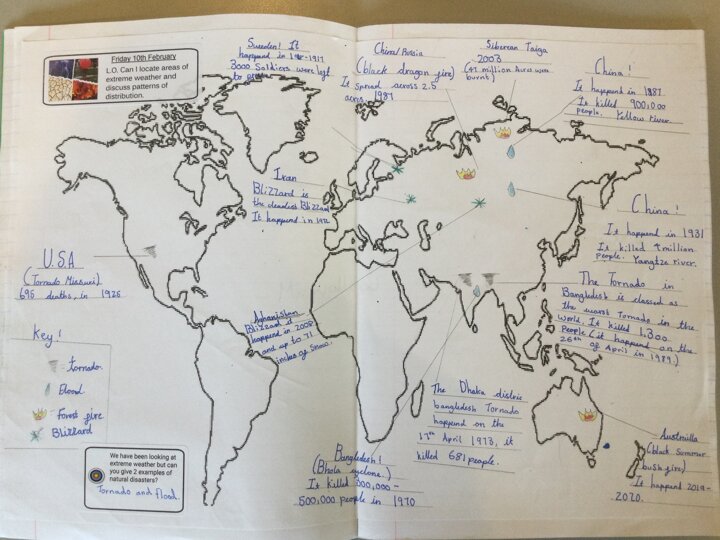 Friday 10th February
L.O. Can I locate areas of
extreme weather and
discuss patterns of
distribution.
Sweden! It
happend in
3000 Soldiers were left
China/Russia
(black dragon fire)
It Spread across 2.5
acres. 1987
Siberean Taiga
2003
(47 million Acres were
burnt)
China!
It happend in 1887
It killed 900,000
people. Yellow river
Iran
Blizzard is
the deadliest Blizzard
It happend in 1972
China!
It happend in 1931
It killed 4 million
people. Yangtze river.
U.S.A
(Tornado Missuri)
695 deaths, in 1925
The Tornado in
Bangladesh is classed as
the worst Tornado in the
World. It killed 1,300
people (it happend on the
26th of April in 1989.)
Afghanistan
Blizzard it
happend in 2008
and up to 71
inches of Snow.
Key!
tornado.
flood.
Forest fire
Blizzard
The Dhaka distric
bangladesh Tornado
happend on the
17th April 1973, it
killed 681 people.
Bangladesh!
(Bhola cyclone.)
It killed 300,000-
500,000 people in 1970
(black Summer
bush fire)
It happend 2019-
2020.
We have been looking at
extreme weather but can
you give 2 examples of
natural disasters?
Tornado and flood.